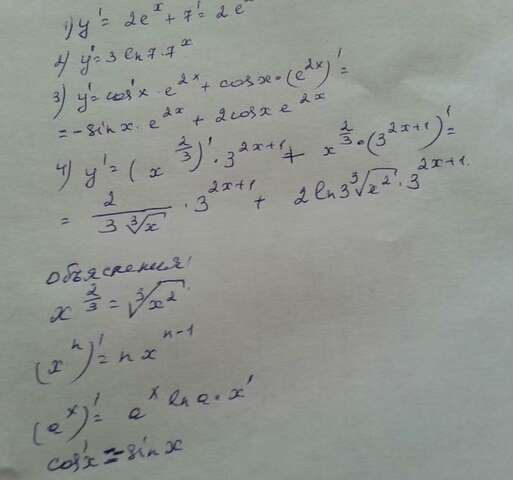 1) y' = 2e^x + 7' = 2e^x
2) y' = 3 ln7·7^x
3) y' = cos'x·e^{2x} + cosx·(e^{2x})' =
= -sinx·e^{2x} + 2cosx e^{2x}
4) y' = (x^{2/3})'·3^{2x+1} + x^{2/3}·(3^{2x+1})' =
= 2/(3∛x)·3^{2x+1} + 2ln3 ∛x^2·3^{2x+1}.
объяснения:
x^{2/3} = ∛x^2.
(x^n)' = nx^{n-1}
(a^x)' = a^x lna·x'
cos'x = -sinx